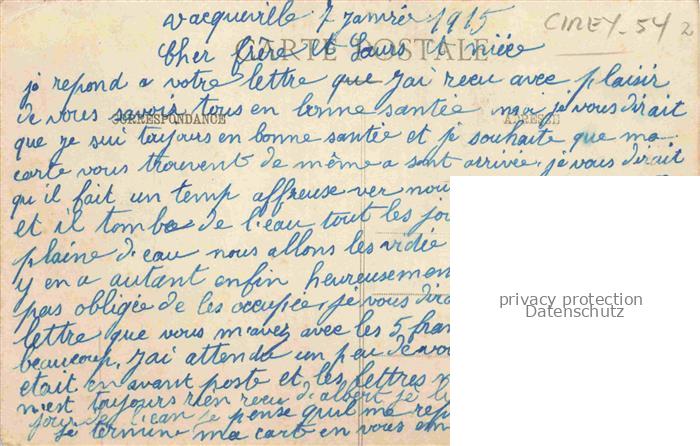 Vacqueville 7 janvié 1915
CIREY-54 2
CARTE POSTALE
Cher frère et Sœurs et nièce
je repond a votre lettre que j'ai recu avec plaisir
de vous savoir tous en bonne santée moi je vous dirait
CORRESPONDANCE
ADRESSE
que je sui toujours en bonne santie et je souhaite que ma
carte vous trouvent de même a sont arrivée. je vous dirait
qu'il fait un temp affreuse ver nou
et il tombe de l'eau tout les jou
plaine d'eau nous allons les vidie
y en a autant enfin heureusemen
pas obligée de les occupée, je vous dira
lettre que vous m'avez avec les 5 fran
beaucoup. J'ai attendu un peu de
etait en avant poste et les lettres
n'est toujours rien recu d'albert je
jour de l'ean je pense qu'il ma rep
je termine ma carte en vous em
privacy protection
Datenschutz